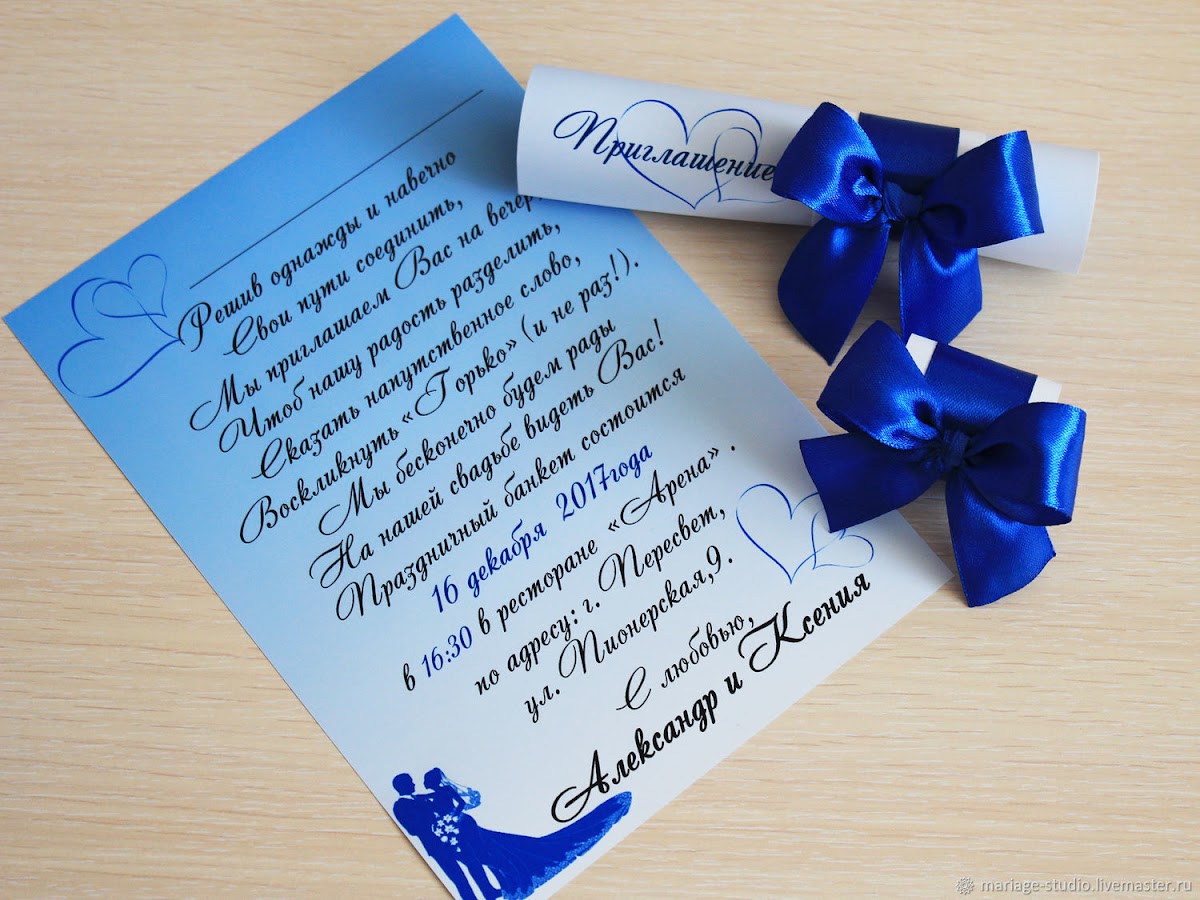 Приглашение
Решив однажды и навечно
Свои пути соединить,
Мы приглашаем Вас на вечер
Чтоб нашу радость разделить,
Сказать напутственное слово,
Воскликнуть «Горько» (и не раз!).
Мы бесконечно будем рады
На нашей свадьбе видеть Вас!
Праздничный банкет состоится
16 декабря 2017года
в 16:30 в ресторане «Арена» .
по адресу: г. Пересвет,
ул. Пионерская,9.
С любовью,
Александр и Ксения
mariage-studio.livemaster.ru